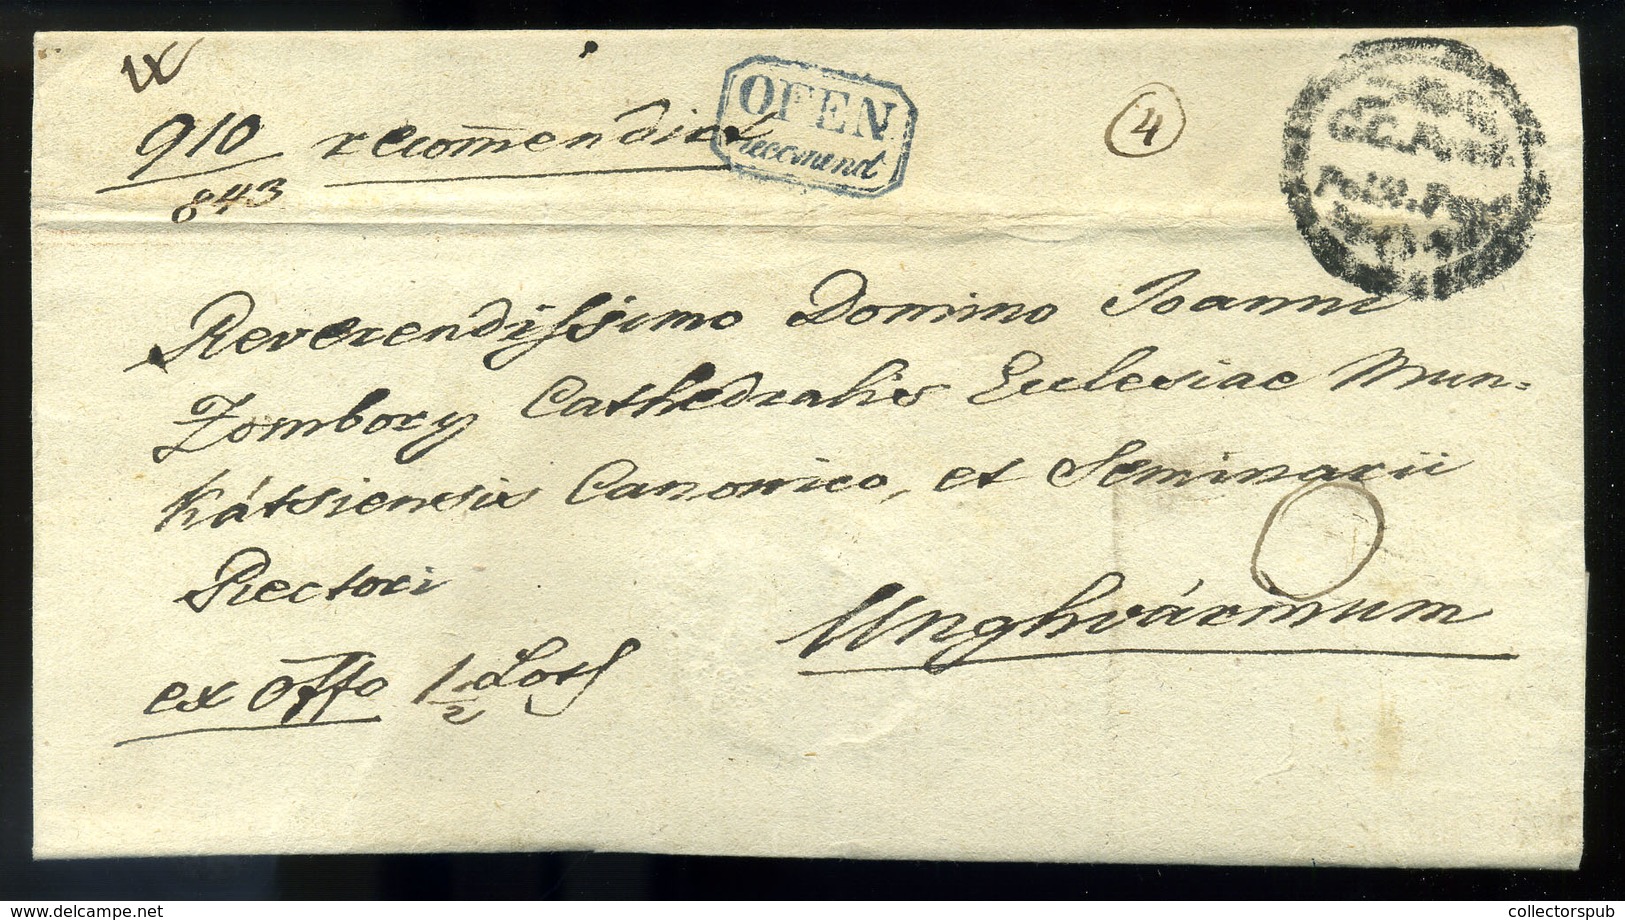 910 recom̄endirt
843
OFEN
Recomend
4
Reverendissimo Domino Joanni
Zombory Cathedralis Ecclesiae Mun-
kátsiensis Canonico, et Seminarii
Rectori
Unghvárinum
ex offo 1/2 Loth
collectorspub